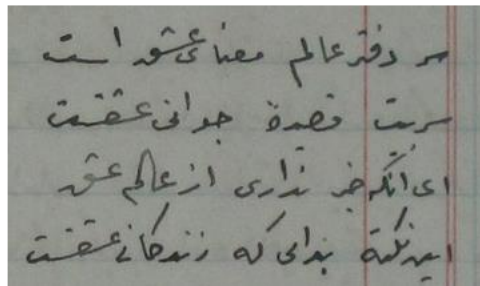 سر دفتر عالم معنای عشق است
سربیت قصیدهٔ جوانی عشقست
ای آنکه خبر نداری از عالم عشق
این نکته بدانی که زندگانی عشقست